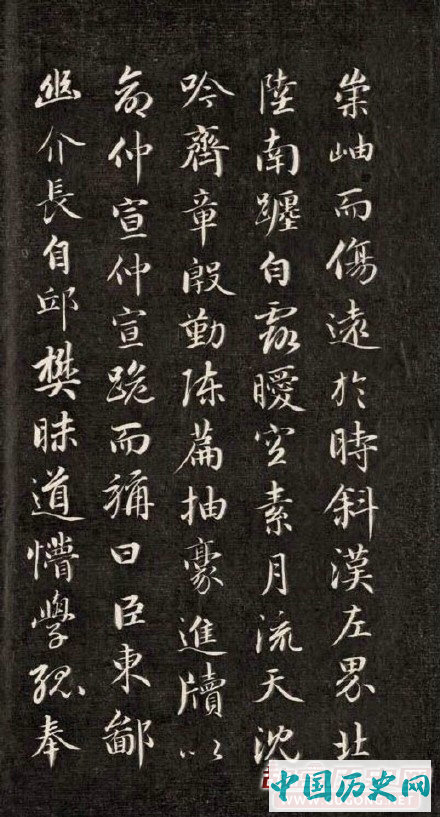 崇岫而傷遠於時斜漢左界北
陸南躔白露曖空素月流天沈
吟齊章殷勤陳篇抽豪進牘以
命仲宣仲宣跪而稱曰臣東鄙
幽介長自邱樊昧道懵學孤奉
中国历史网